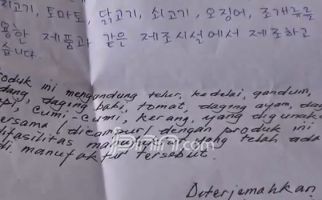 지고기, 토마토, 닭고기, 쇠고기, 오징어, 조개류를
용한 제품과 같은 제조시설에서 제조하고
습니다.
oduk ini mengandung telur, kedelai, gandum,
daging babi, tomat, daging ayam, dag
pi, cumi-cumi, kerang, yang digunak
ersama (dicampur) dengan produk ini
fasilitas yang telah ada
di manufaktur tersebut.
jpnn.com
Diterjemahkan